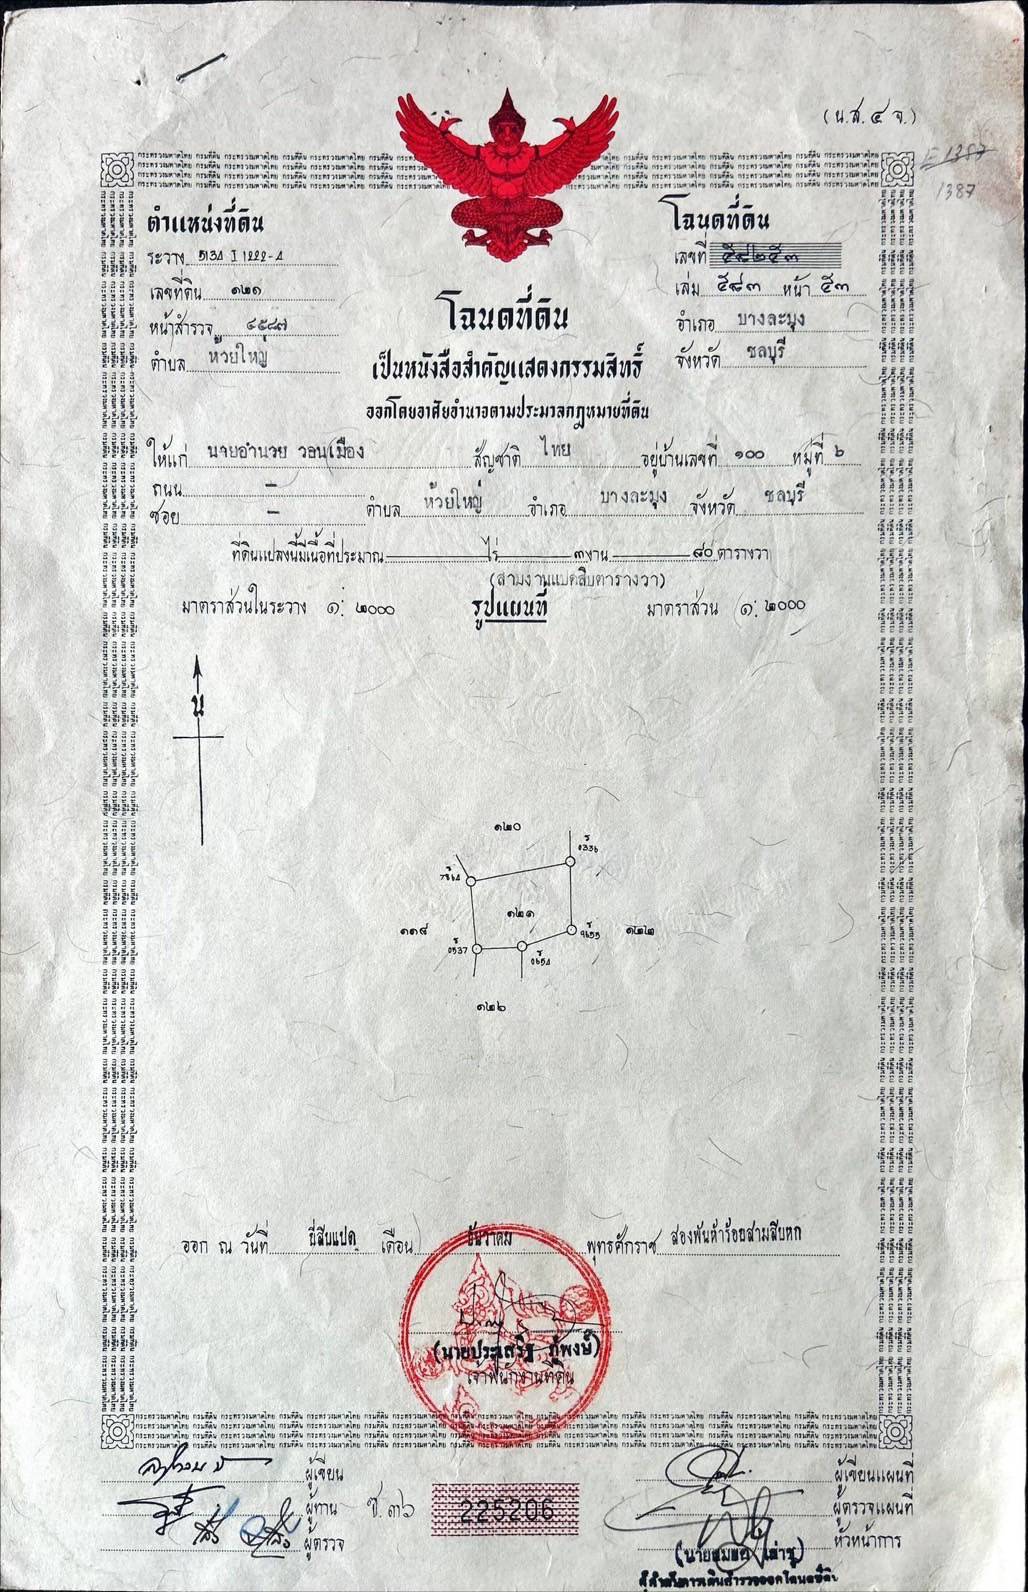 (น.ส. ๔ จ.)
1387
1387
ตำแหน่งที่ดิน
โฉนดที่ดิน
ระวาง 5134 I 1222-4
เลขที่ ๕๘๒๕๓
เลขที่ดิน ๑๒๑
เล่ม ๕๘๓ หน้า ๕๓
หน้าสำรวจ ๔๕๘๗
อำเภอ บางละมุง
ตำบล ห้วยใหญ่
จังหวัด ชลบุรี
โฉนดที่ดิน
เป็นหนังสือสำคัญแสดงกรรมสิทธิ์
ออกโดยอาศัยอำนาจตามประมวลกฎหมายที่ดิน
ให้แก่ นายอำนวย วอนเมือง สัญชาติ ไทย อยู่บ้านเลขที่ ๑๐๐ หมู่ที่ ๖
ถนน –
ซอย – ตำบล ห้วยใหญ่ อำเภอ บางละมุง จังหวัด ชลบุรี
ที่ดินแปลงนี้มีเนื้อที่ประมาณ ไร่ ๓ งาน ๘๐ ตารางวา
(สามงานแปดสิบตารางวา)
มาตราส่วนในระวาง ๑ : ๒๐๐๐ รูปแผนที่ มาตราส่วน ๑ : ๒๐๐๐
น
๑๒๐
ร 0336
7ร64
๑๒๑
๑๑๘
ร 0537
ร 0654
ร 9655
๑๒๒
๑๒๖
ออก ณ วันที่ ยี่สิบแปด เดือน ธันวาคม พุทธศักราช สองพันห้าร้อยสามสิบหก
(นายประเสริฐ ภู่พงษ์)
เจ้าพนักงานที่ดิน
ผู้เขียน
ผู้เขียนแผนที่
ผู้ทาน ช.๓๖
225206
ผู้ตรวจแผนที่
ผู้ตรวจ
หัวหน้าการ